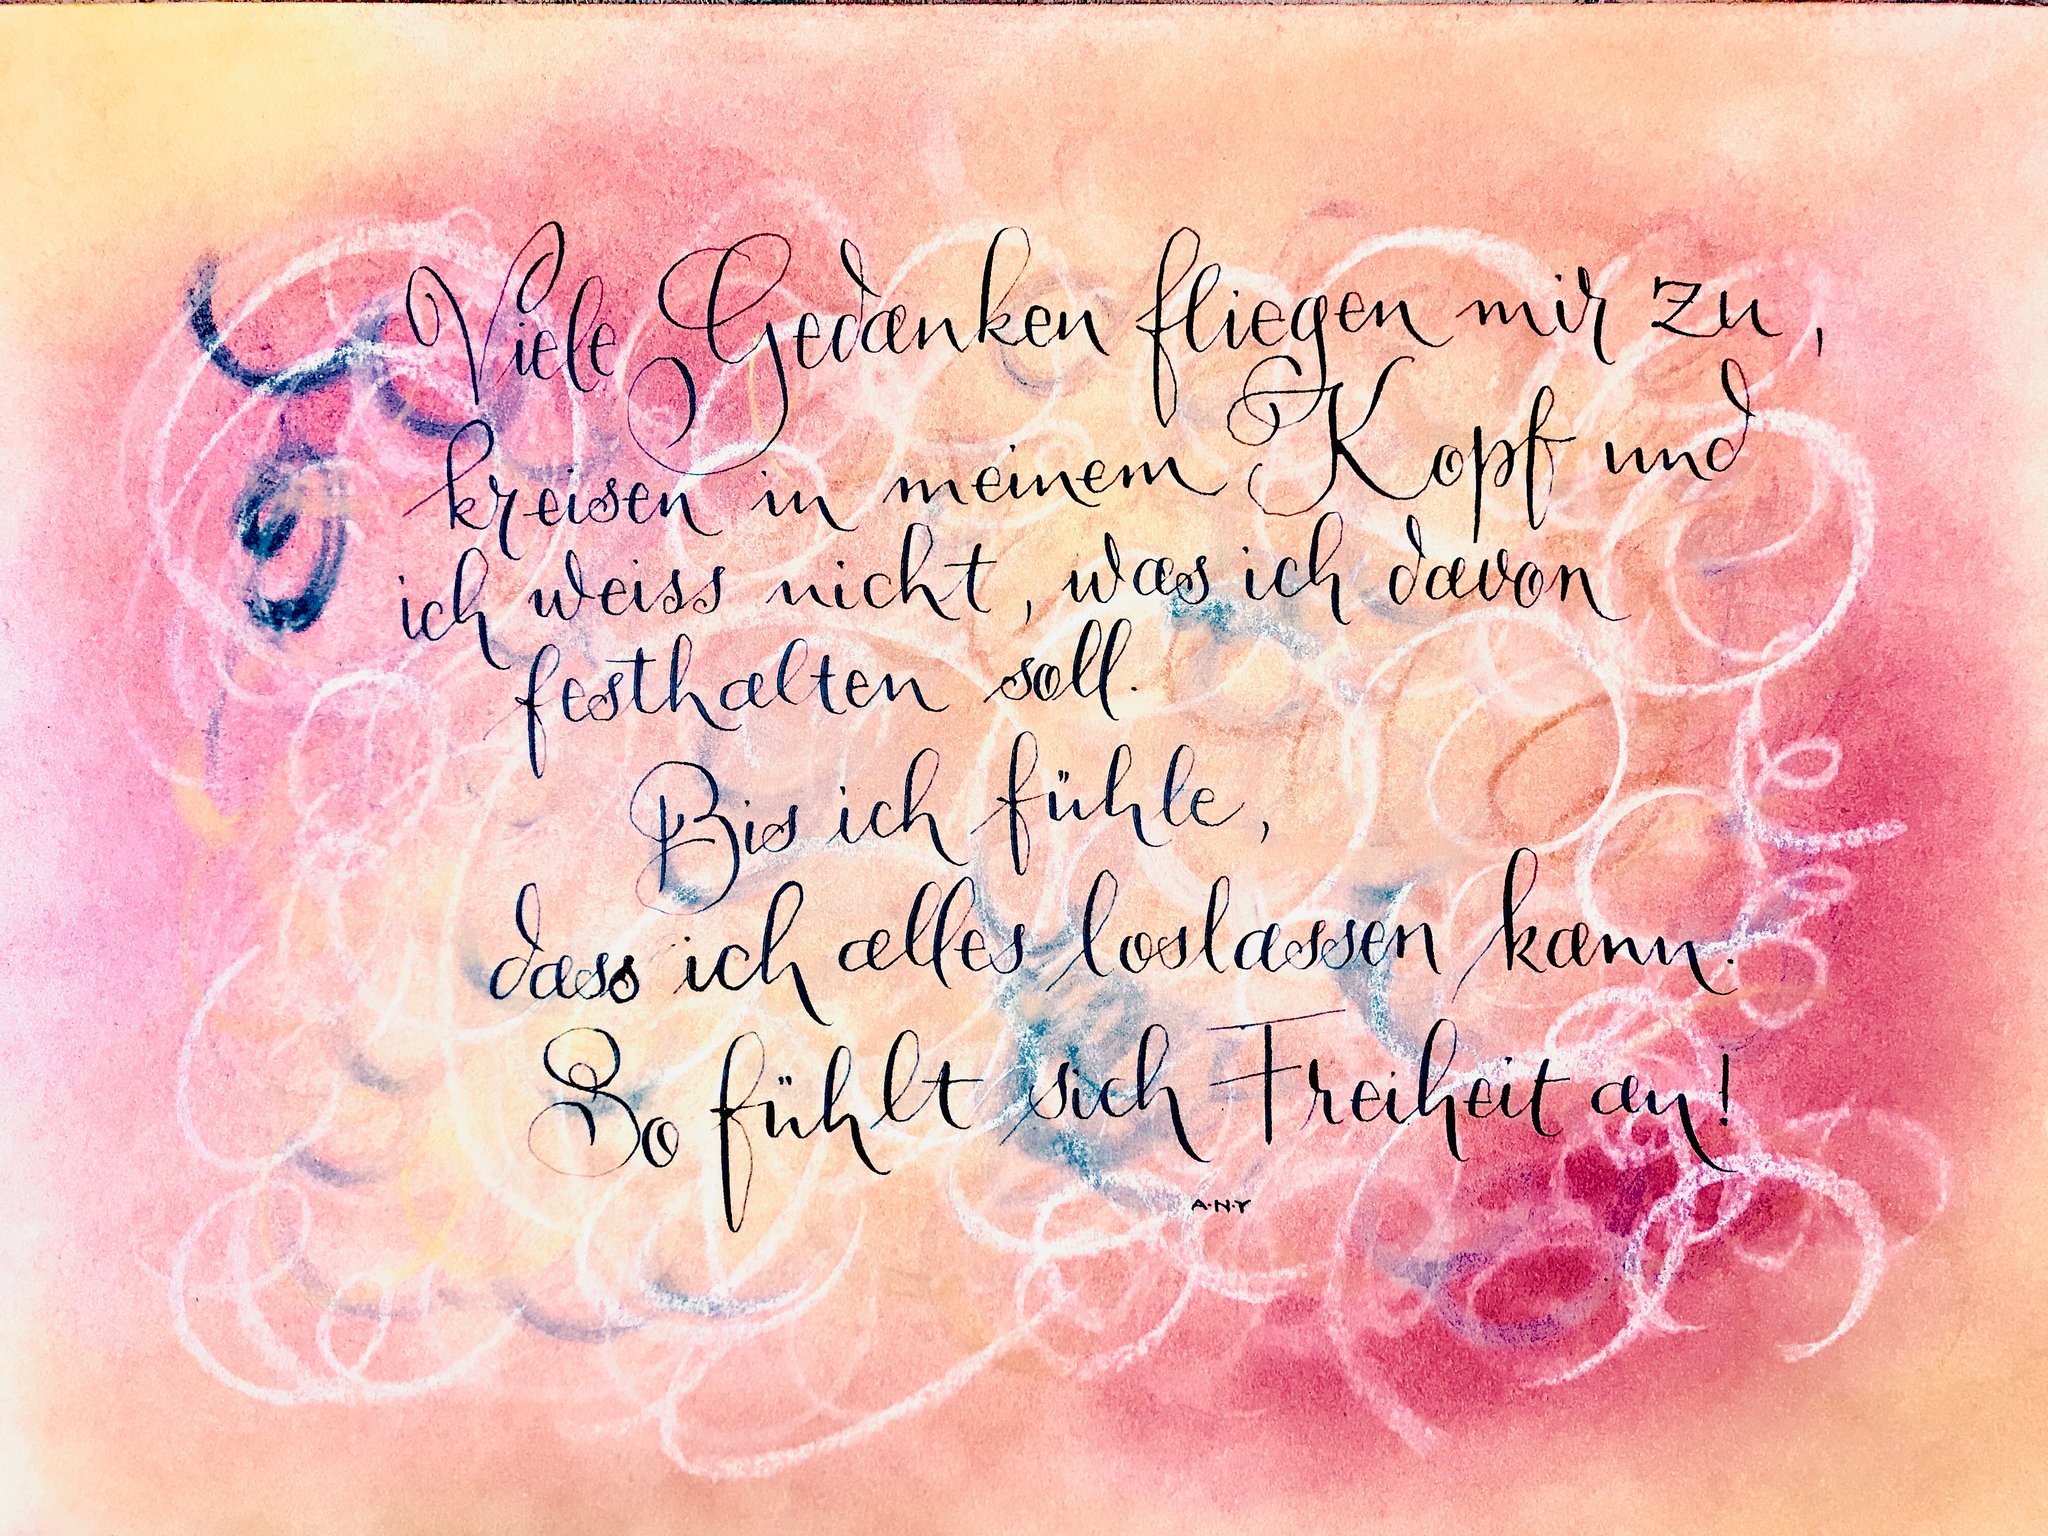 Viele Gedanken fliegen mir zu,
kreisen in meinem Kopf und
ich weiss nicht, was ich davon
festhalten soll.
Bis ich fühle,
dass ich alles loslassen kann.
So fühlt sich Freiheit an!
A·N·Y